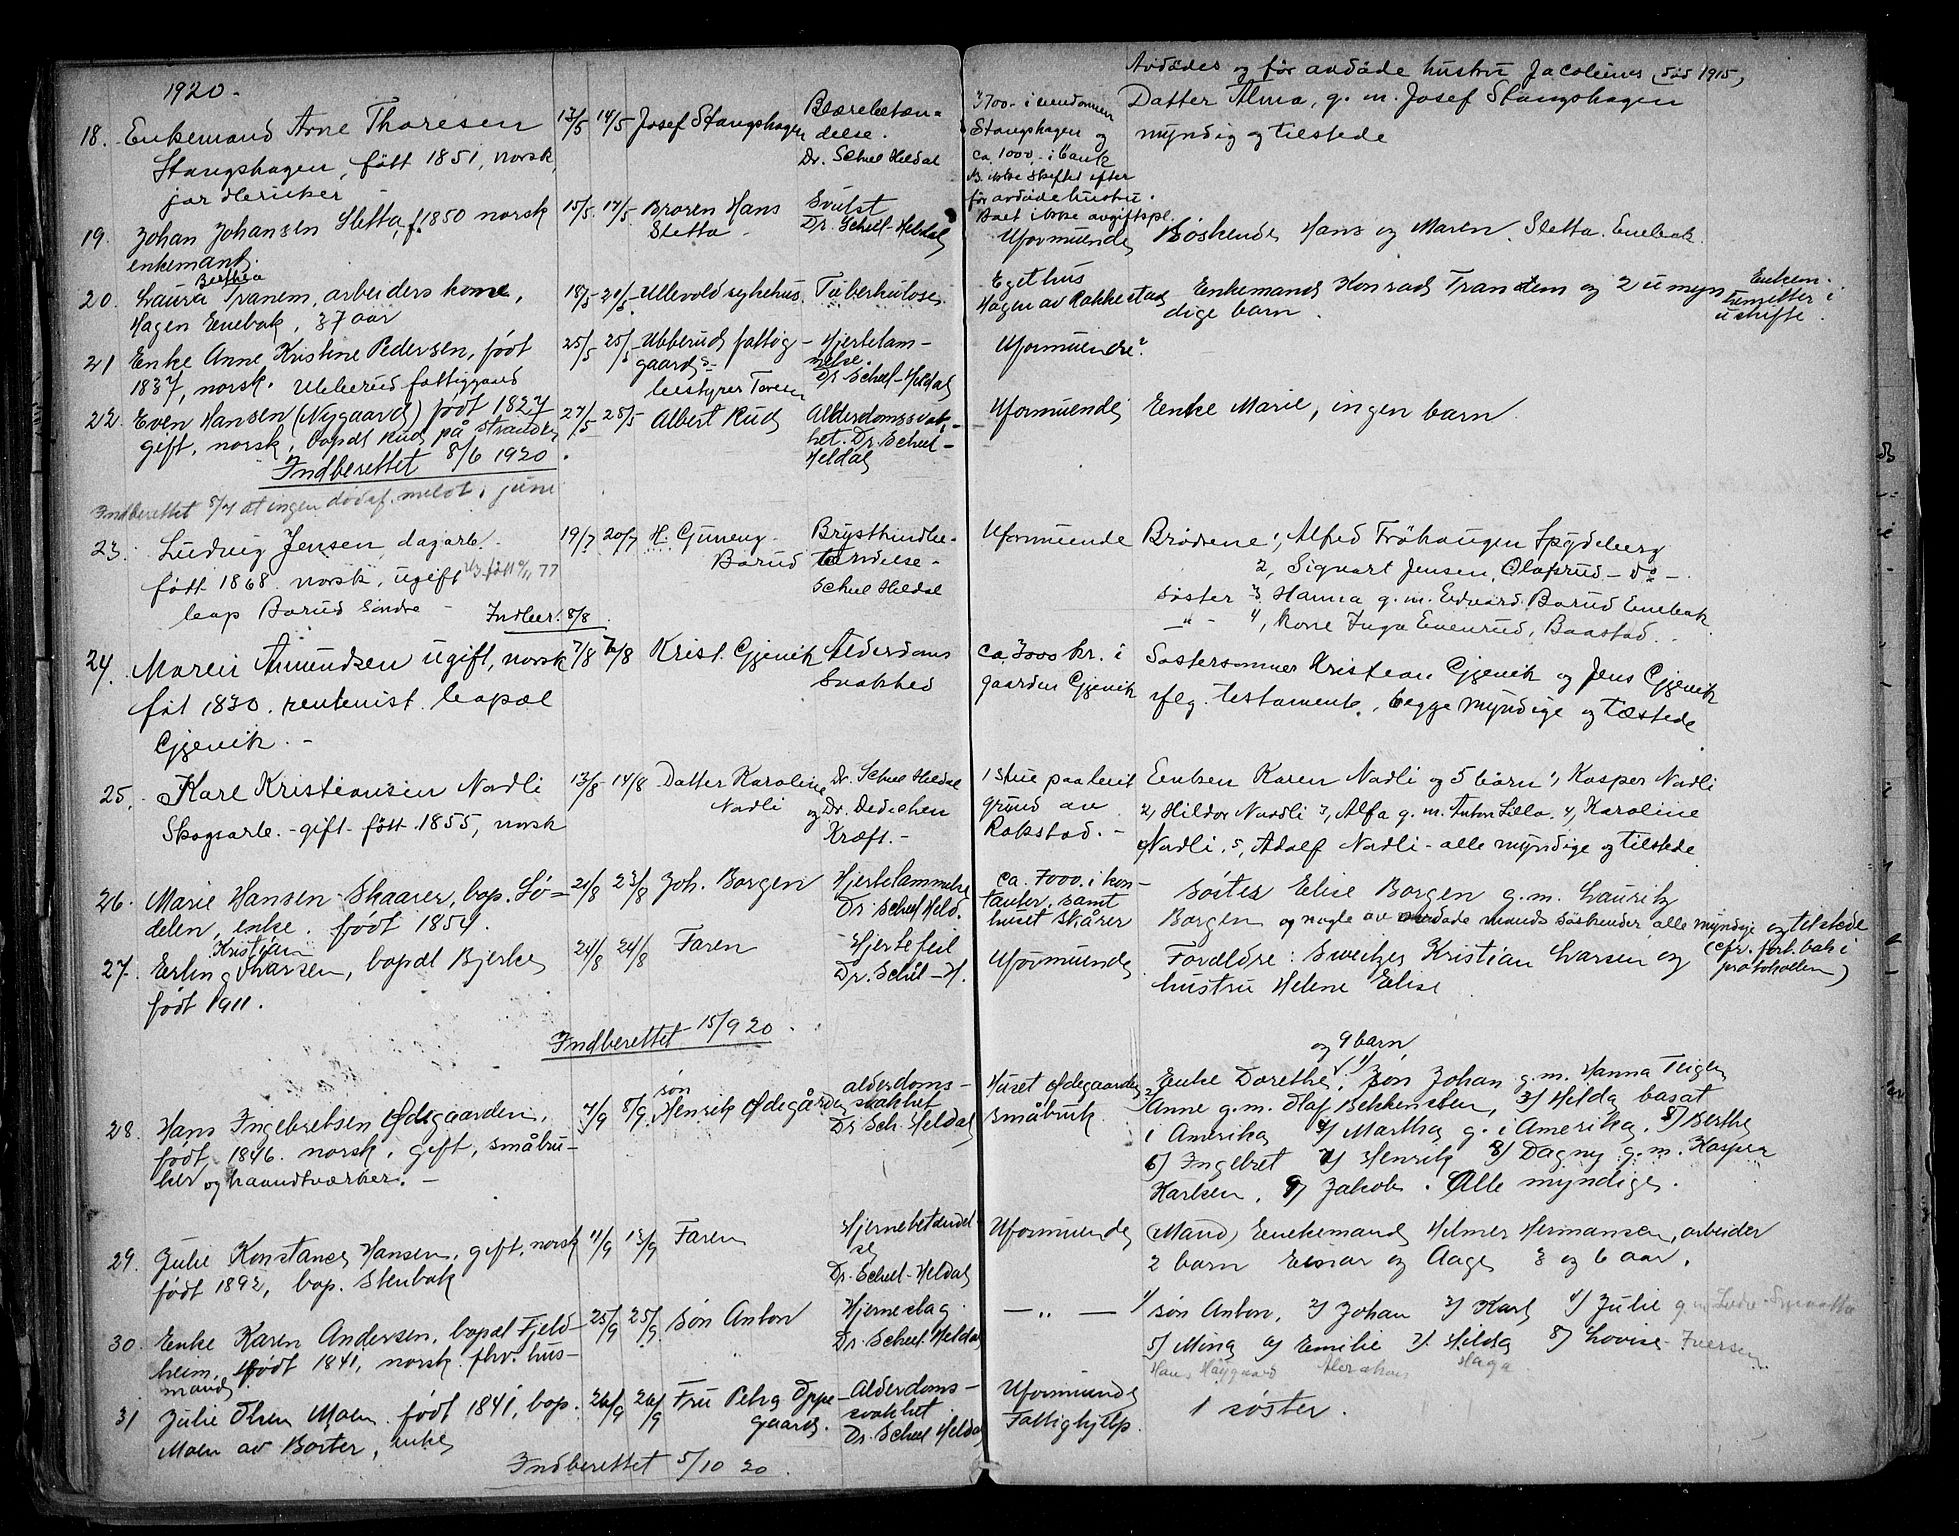 1920.
18. Enkemand Arne Thoresen
Stangshagen, født 1851, norsk,
jordbruker
13/5 14/5 Josef Stangshagen
Dr. Scheel Heldal
3700.- i eiendommen
Stangshagen og
ca. 1000,- i bank
ikke skiftet efter
før avdøde hustru.
Boet ikke avgiftspl.
Avdødes og før avdøde hustru Jacobines, død 1915,
Datter Alma, g. m. Josef Stangshagen
myndig og tilstede
19. Johan Johansen Sletta, f. 1850 norsk
enkemand.
15/5. 17/5 Broren Hans
Sletta -
Svulst
Dr. Scheel-Heldal
Uformuende
Søskende Hans og Maren Sletta. Enebak.
20. Laura Berthea Tranem, arbeiders kone,
Hagen Enebak, 37 aar
18/5- 20/5. Ullevold sykehus. Tuberkulose
Eget hus
Hagen av Rakkestad
Enkemand Konrad Tranem og 2 umyn
dige barn.
Enkem.
hensitter i
uskifte.
21 Enke Anne Kristine Pedersen, født
1837, norsk. Ubberud fattiggaard
25/5 25/5 Ubberud fattig-
gaards
bestyrer
Hjertelam-
melse.
Dr. Scheel-Heldal
Uformuende.
22. Even Hansen (Nygaard) født 1827
gift, norsk, bopæl Rud på stranden
27/5 28/5 Albert Rud
Alderdomssvak-
het. Dr. Scheel-
Heldal
Uformuende
Enke Marie, ingen barn.
Indberettet 8/6 1920.
Indberettet 8/7 at ingen dødsf. meldt i juni
23. Ludvig Jensen, dagarb.
født 1868 norsk, ugift
bop Borud søndre -
Indber. 8/8
19/7 20/7 H. Guneng.
Borud
Brysthindbe-
tændelse -
Scheel Heldal
Uformuende
Brødrene 1, Alfred Frøhaugen Spydeberg
2, Sigvart Jensen, Olaprud - do -
søster 3 Hanna g. m. Edvard Borud Enebak
- " - 4, kone Inga Evenrud, Baastad.
24. Maren Amundsen ugift, norsk
føt 1830. rentenist. bopæl
Gjevik. -
7/8 7/8 Krist. Gjevik
Alderdoms
Svakhed
ca. 3000 kr. i
gaarden Gjevik
Søstersønner Kristian Gjevik og Jens Gjevik
iflg. testamente, begge myndige og tilstede
25. Karl Kristiansen Nordli
Skogsarb. - gift - født 1855, norsk
13/8- 14/8 Datter Karoline
Nordli
Dr. Scheel Heldal
og Dr. Dedichen
Kræft. -
1 stue paa leiet
grund av
Rakstad. -
Enken Karen Nordli og 5 børn 1, Kasper Nordli
2, Hildor Nordli 3, Alfa g. m. Anton Lilla. 4, Karoline
Nordli, 5, Adolf Nordli - alle myndige og tilstede
26. Marie Hansen Skaarer, bop. Lø-
delen, enke. født 1854.
21/8 23/8 Joh. Borgen
Hjertelammelse
Dr. Scheel Held.
ca. 7000. i kon-
tanter, samt
huset Skårer
Søster Elise Borgen g. m. Lauritz
Borgen og nogle av avdøde mands søskender alle myndige og tilstede
(cfr. forh. bak i
protokollen)
27. Erling Kristian Larsen, bopæl Bjerke
født 1911.
24/8 24/8 Faren
Hjertefeil
Dr. Scheel-H.
Uformuende
Forældre: Sweitzer Kristian Larsen og
hustru Helene Elise
Indberettet 15/9 20.
28. Hans Ingebretsen Ødegaarden,
født 1846. norsk, gift, småbru-
ker og haandtværker. -
7/9 8/9. søn
Henrik Ødegården
alderdoms-
svakhet
Dr. Sch. Heldal
Huset Ødegaarden
småbruk.
og 9 barn
Enke Dorethe, 1) søn Johan g. m. Hanna Teigen
2) Anne g. m. Olaf Bekkensten, 3) Hilda bosat
i Amerika 4) Martha g. i Amerika. 5) Berthe
6) Ingebret 7) Henrik 8) Dagny g. m. Kasper
Karlsen, 9) Jakob. Alle myndige.
29. Julie Konstanse Hansen, gift, norsk
født 1892, bop. Stenbæk
11/9 13/9 Faren
Hjernebetændel-
se
Dr. Scheel-Heldal
Uformuende
(Mand) Enkemand Helmer Hermansen, arbeider
2 barn Einar og Aage 3 og 6 aar.
30. Enke Karen Andersen, bopæl Fjeld-
heim, født 1841, norsk. fhv. hus-
mand.
25/9 25/9. søn Anton
Hjerneslag.
Dr. Scheel-Heldal
— „ —
1) søn Anton, 2) Johan 3) Karl 4) Julie
5) Mina 6) Emilie 7) Hilda 8) Lovise Iversen
Haga
31 Julie Olsen Moen født 1841, bop.
Moen av Boster, enke
26/9 26/9 Fru Petra Oppe-
gaard.
Alderdoms-
svakhet
Dr. Scheel Heldal
Uformuende
Fattighjelp.
1 søster.
Indberettet 5/10 20.